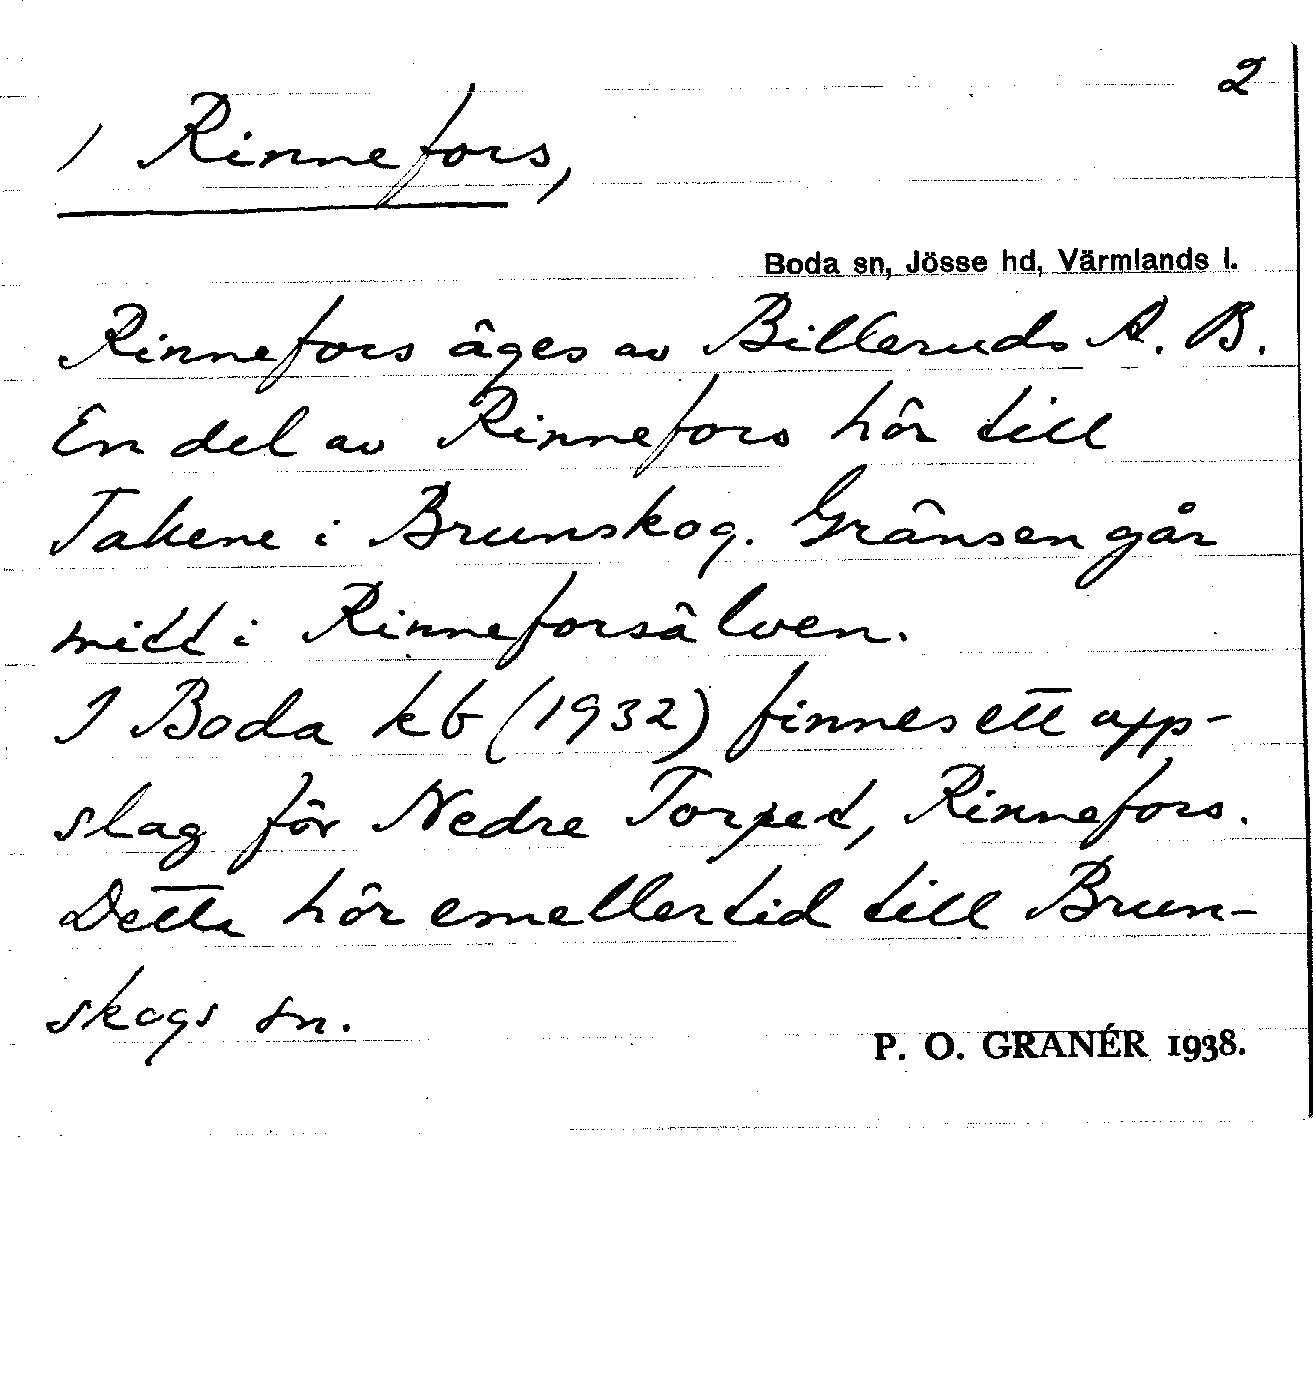 2
/ Rinnefors,
Boda sn, Jösse hd, Värmlands l.
Rinnefors äges av Billeruds A. B.
En del av Rinnefors hör till
Takene i Brunskog. Gränsen går
mitt i Rinneforsälven.
I Boda kb (1932) finnes ett upp-
slag för Nedre Torpet, Rinnefors.
Detta hör emellertid till Brun-
skogs sn.
P. O. GRANÉR 1938.